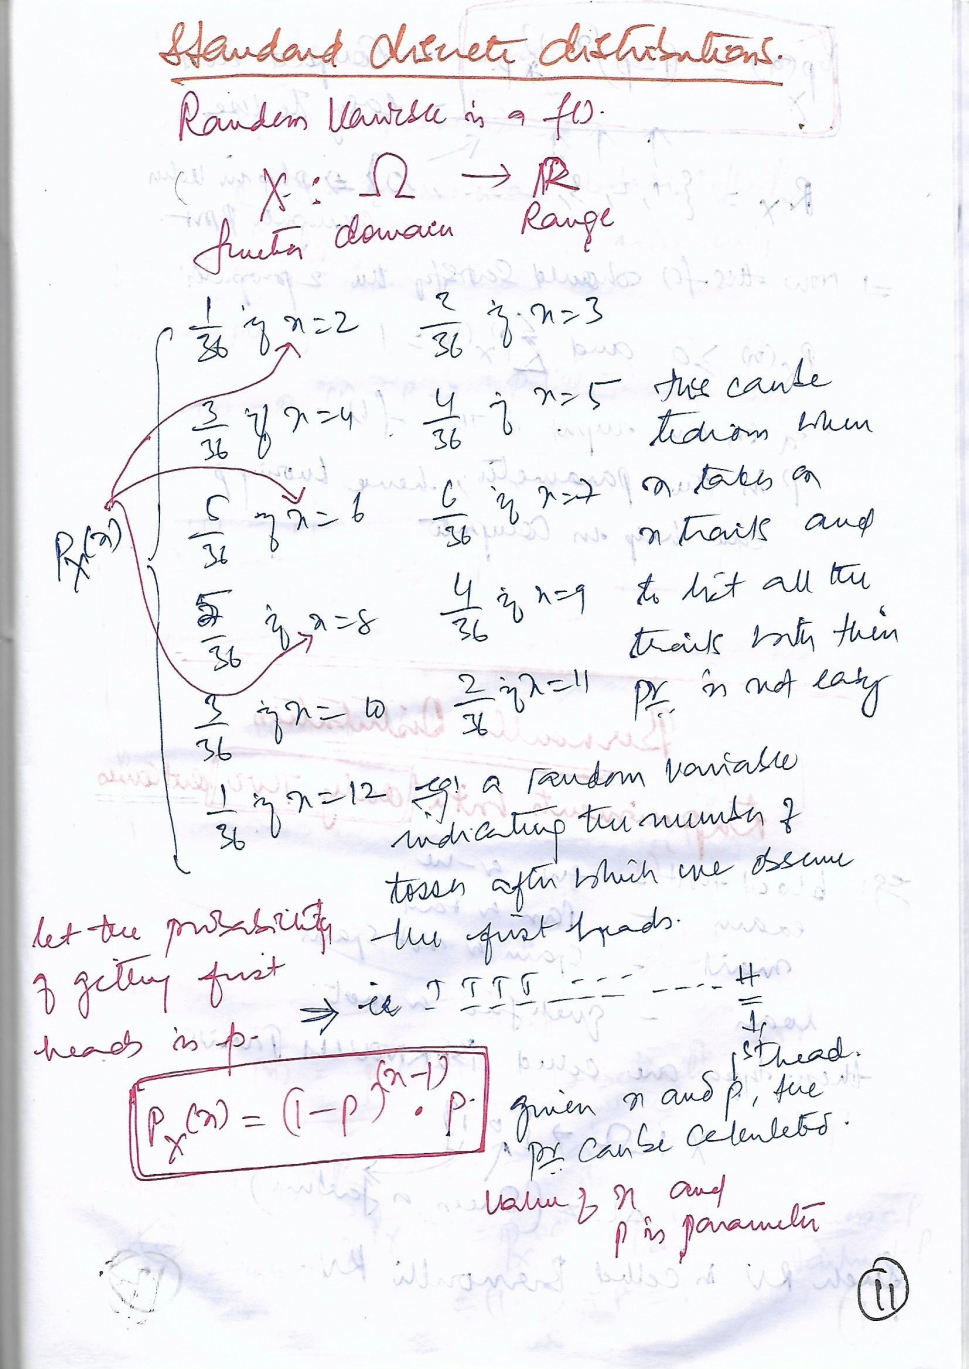 Standard discrete distributions.
Random Variable is a f().
X : Ω → ℝ
functn domain Range
1/36 if x=2 2/36 if x=3
3/36 if x=4 4/36 if x=5 this can be
tedious when
5/36 if x=6 6/36 if x=7 x takes on
n trails and
P_X(x)
5/36 if x=8 4/36 if x=9 to list all the
trails with their
3/36 if x=10 2/36 if x=11 pr. is not easy
1/36 if x=12 eg: a random variable
indicating the number of
tosses after which we observe
the first heads.
let the probability
of getting first
heads is p.
⇒ ie T T T T ---- ---- H
1st head.
P_X(x) = (1-p)^(x-1) · p.
given x and p, the
pr can be calculated.
value of x and
p is parameter
11